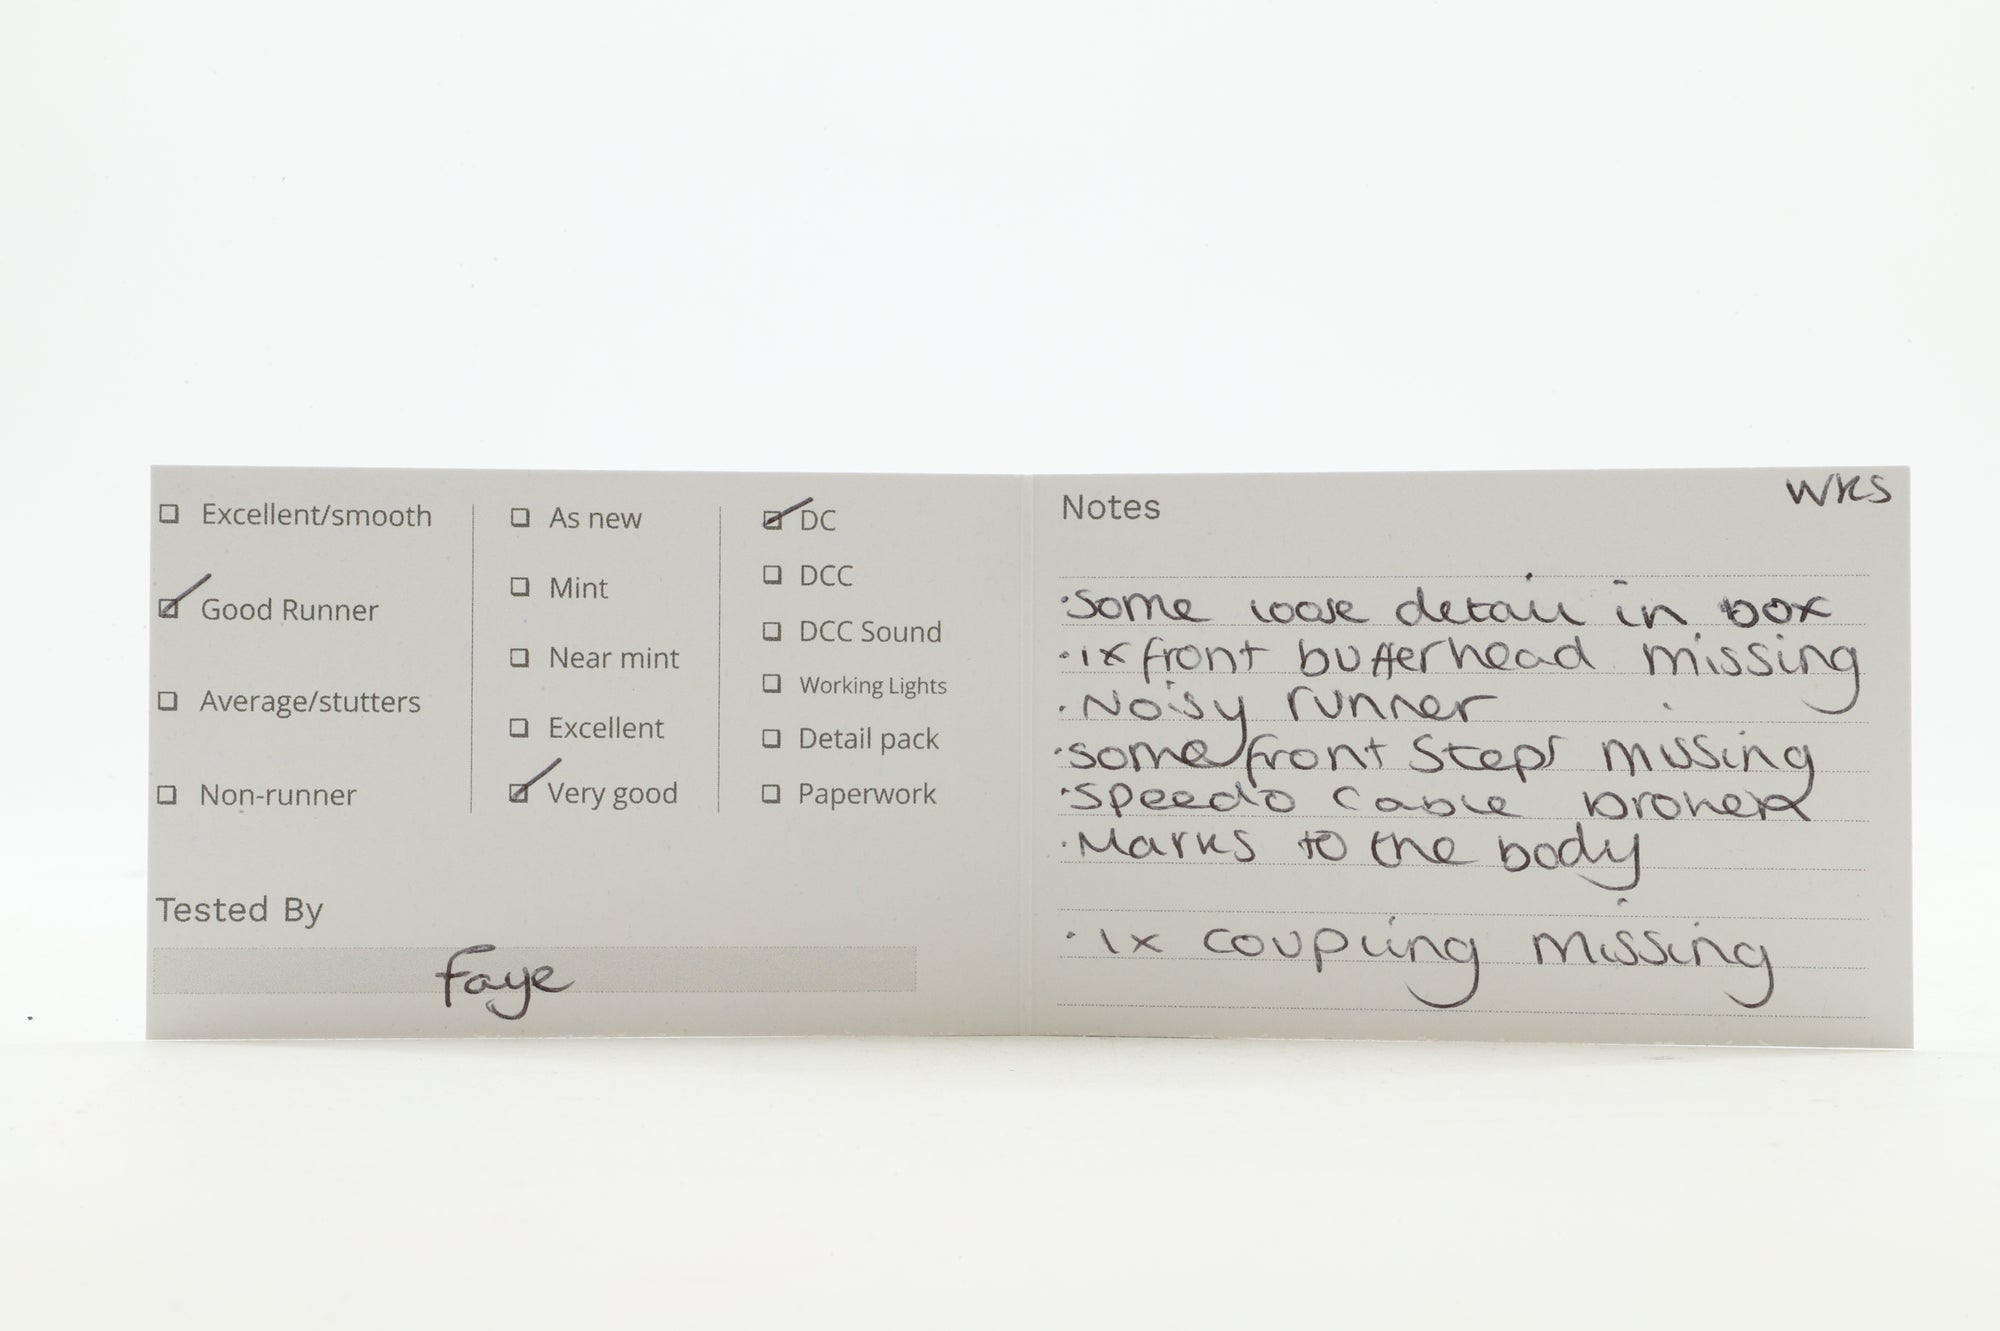 ☐ Excellent/smooth
☑ Good Runner
☐ Average/stutters
☐ Non-runner
☐ As new
☐ Mint
☐ Near mint
☐ Excellent
☑ Very good
☑ DC
☐ DCC
☐ DCC Sound
☐ Working Lights
☐ Detail pack
☐ Paperwork
Tested By
Faye
WKS
Notes
·Some loose detail in box
·1x front bufferhead missing
·Noisy runner
·some front steps missing
·speedo cable broken
·Marks to the body
·1x coupling missing